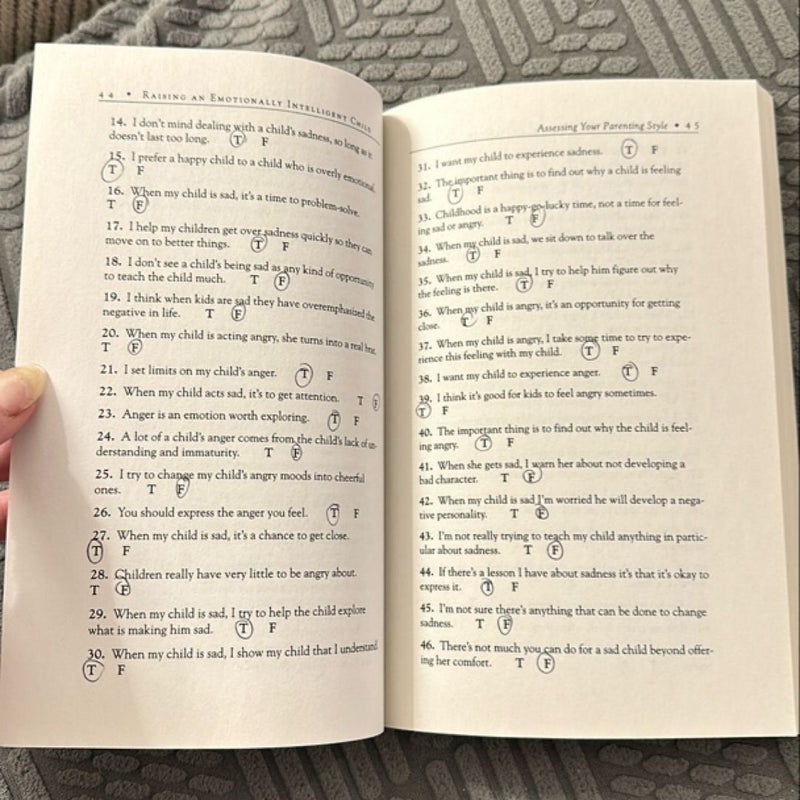 44 • RAISING AN EMOTIONALLY INTELLIGENT CHILD
14. I don't mind dealing with a child's sadness, so long as it
doesn't last too long. T F
15. I prefer a happy child to a child who is overly emotional.
T F
16. When my child is sad, it's a time to problem-solve.
T F
17. I help my children get over sadness quickly so they can
move on to better things. T F
18. I don't see a child's being sad as any kind of opportunity
to teach the child much. T F
19. I think when kids are sad they have overemphasized the
negative in life. T F
20. When my child is acting angry, she turns into a real brat.
T F
21. I set limits on my child's anger. T F
22. When my child acts sad, it's to get attention. T F
23. Anger is an emotion worth exploring. T F
24. A lot of a child's anger comes from the child's lack of un-
derstanding and immaturity. T F
25. I try to change my child's angry moods into cheerful
ones. T F
26. You should express the anger you feel. T F
27. When my child is sad, it's a chance to get close.
T F
28. Children really have very little to be angry about.
T F
29. When my child is sad, I try to help the child explore
what is making him sad. T F
30. When my child is sad, I show my child that I understand.
T F
Assessing Your Parenting Style • 45
31. I want my child to experience sadness. T F
32. The important thing is to find out why a child is feeling
sad. T F
33. Childhood is a happy-go-lucky time, not a time for feel-
ing sad or angry. T F
34. When my child is sad, we sit down to talk over the
sadness. T F
35. When my child is sad, I try to help him figure out why
the feeling is there. T F
36. When my child is angry, it's an opportunity for getting
close. T F
37. When my child is angry, I take some time to try to expe-
rience this feeling with my child. T F
38. I want my child to experience anger. T F
39. I think it's good for kids to feel angry sometimes.
T F
40. The important thing is to find out why the child is feel-
ing angry. T F
41. When she gets sad, I warn her about not developing a
bad character. T F
42. When my child is sad I'm worried he will develop a nega-
tive personality. T F
43. I'm not really trying to teach my child anything in partic-
ular about sadness. T F
44. If there's a lesson I have about sadness it's that it's okay to
express it. T F
45. I'm not sure there's anything that can be done to change
sadness. T F
46. There's not much you can do for a sad child beyond offer-
ing her comfort. T F